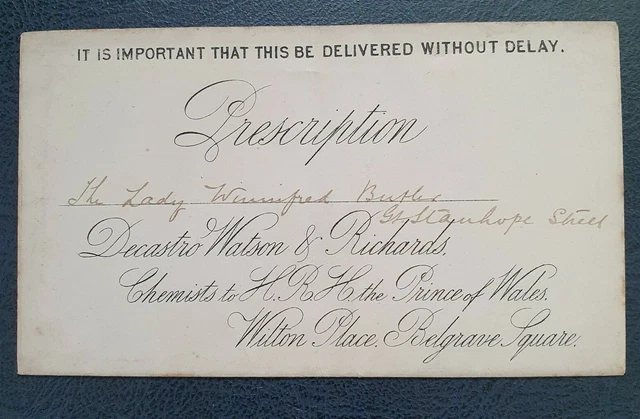 IT IS IMPORTANT THAT THIS BE DELIVERED WITHOUT DELAY.
Prescription
The Lady Winnifred Butler
Gt. Stanhope Street
Decastro Watson & Richards.
Chemists to H.R.H. the Prince of Wales.
Wilton Place. Belgrave Square.